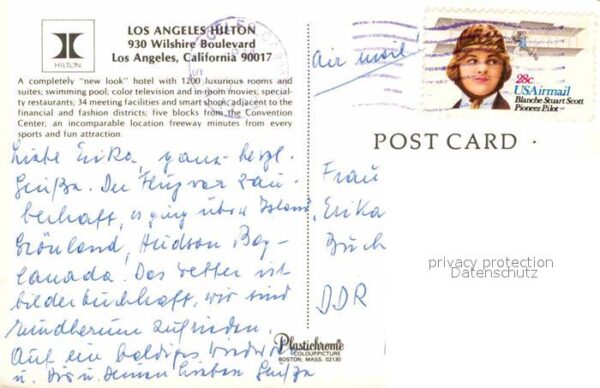 HILTON
LOS ANGELES HILTON
930 Wilshire Boulevard
Los Angeles, California 90017
A completely "new look" hotel with 1200 luxurious rooms and
suites; swimming pool; color television and in-room movies; special-
ty restaurants; 34 meeting facilities and smart shops; adjacent to the
financial and fashion districts; five blocks from the Convention
Center; an incomparable location freeway minutes from every
sports and fun attraction.
Liebe Erika, ganz herzl.
Grüße. Der Flug war zau-
berhaft, es ging über Island,
Grönland, Hudson Bay-
Canada. Das Wetter ist
bilderbuchhaft, wir sind
rundherum zufrieden.
Auf ein baldiges
u. Dir u. Deinen Lieben Grüße
Plastichrome
COLOURPICTURE
BOSTON, MASS. 02130
air mail
28c
USAirmail
Blanche Stuart Scott
Pioneer Pilot
POST CARD
Frau
Erika
Buch
DDR
privacy protection
Datenschutz